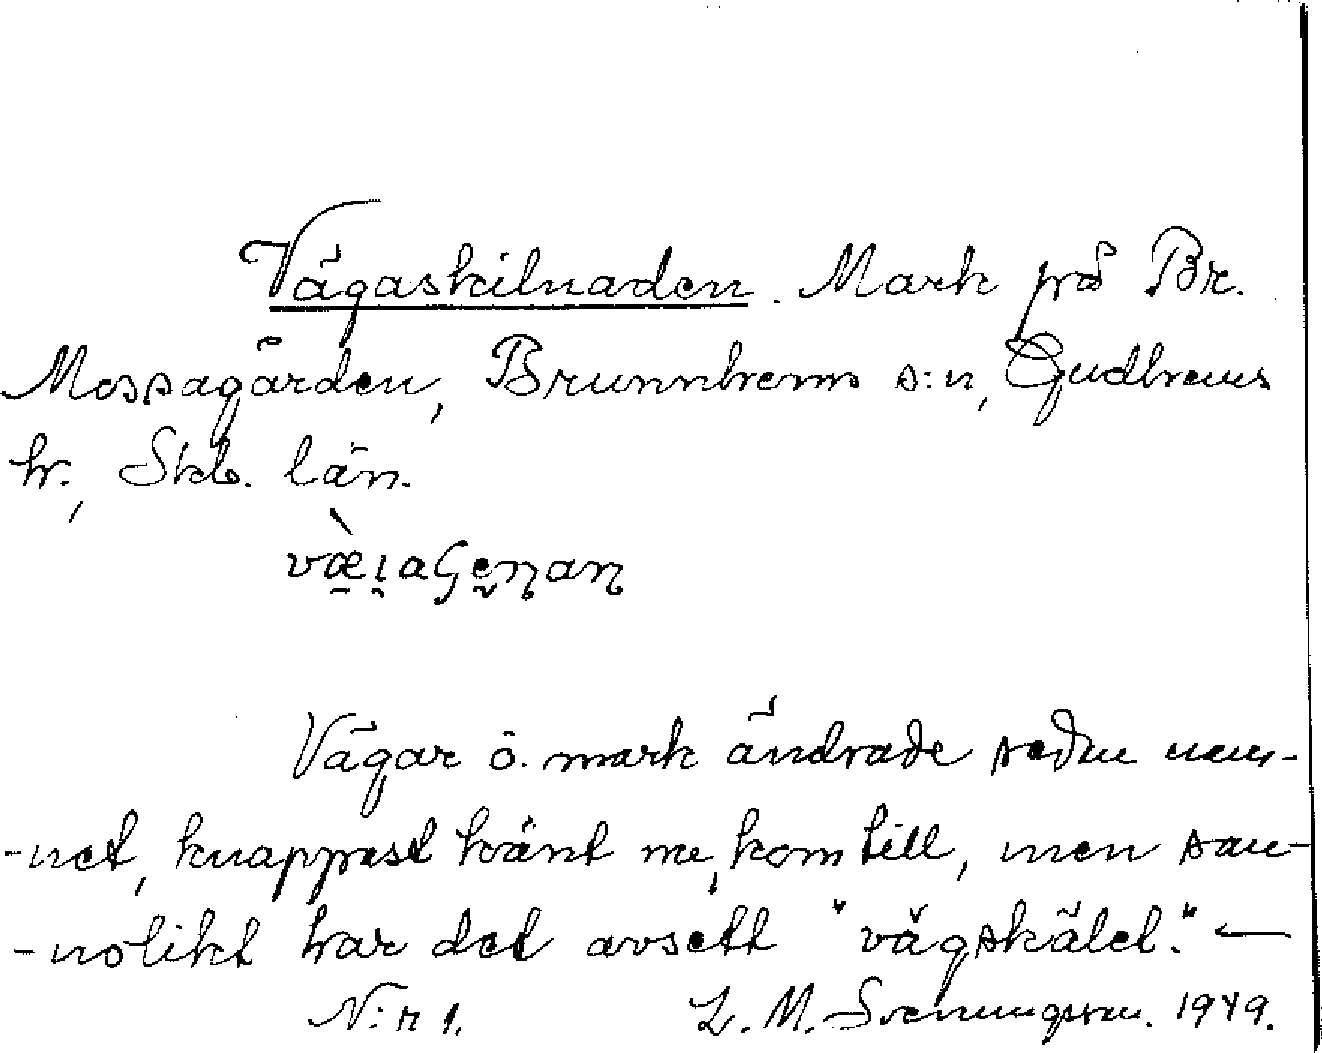 Vägaskilnaden. Mark på Br.
Mossagården, Brunnhems s:n, Gudhems
hr., Skb. län.
Vägar o. mark ändrade sedan nam-
-net, knappast känt me, kom till, men san-
-nolikt har det avsett "vägskälet." —
N:r 1. L. M. Svenungsson. 1949.